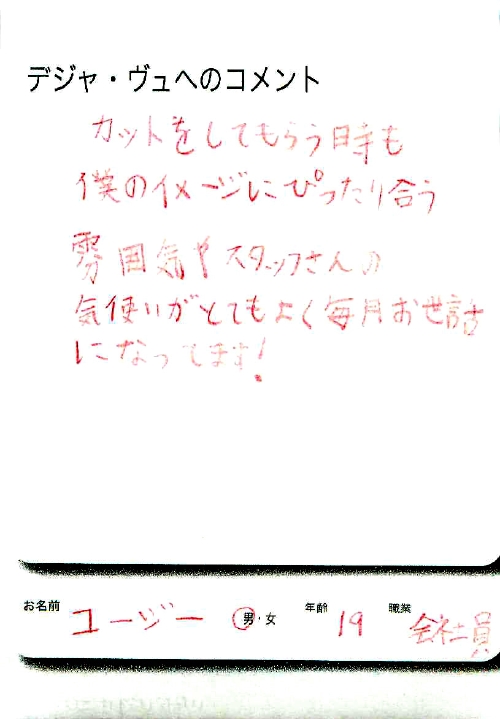 デジャ・ヴュへのコメント
カットをしてもらう時も
僕のイメージにぴったり合う
雰囲気やスタッフさんの
気使いがとてもよく毎月お世話
になってます!
お名前 ユージー 男・女 年齢 19 職業 会社員